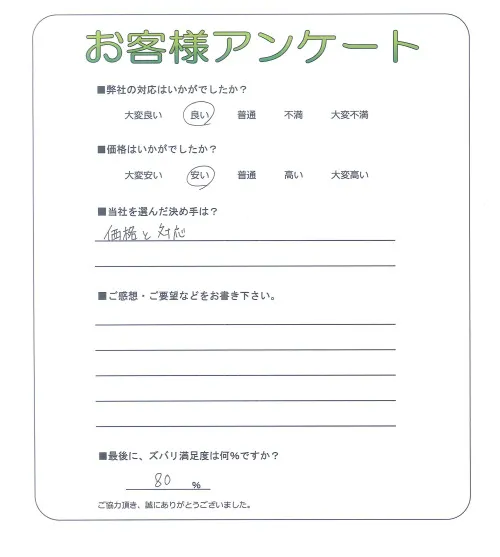 お客様アンケート
■弊社の対応はいかがでしたか？
大変良い 良い 普通 不満 大変不満
■価格はいかがでしたか？
大変安い 安い 普通 高い 大変高い
■当社を選んだ決め手は？
価格と対応
■ご感想・ご要望などをお書き下さい。
■最後に、ズバリ満足度は何%ですか？
80 %
ご協力頂き、誠にありがとうございました。